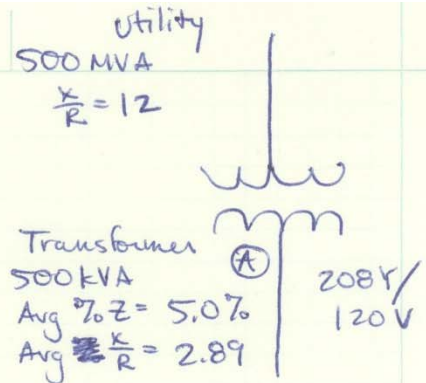 Utility
500 MVA
X/R = 12
Transformer
500 kVA
Avg %Z = 5.0%
Avg X/R = 2.89
A
208Y/
120V